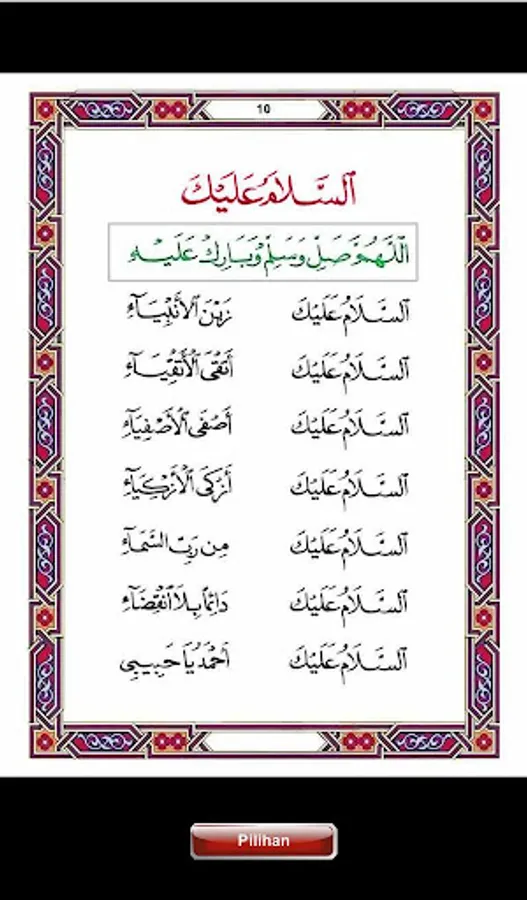 10
اَلسَّلَامُ عَلَيْكَ
اَللَّهُمَّ صَلِّ وَسَلِّمْ وَبَارِكْ عَلَيْهِ
اَلسَّلَامُ عَلَيْكَ زَيْنَ الْأَنْبِيَاءِ
اَلسَّلَامُ عَلَيْكَ أَتْقَى الْأَتْقِيَاءِ
اَلسَّلَامُ عَلَيْكَ أَصْفَى الْأَصْفِيَاءِ
اَلسَّلَامُ عَلَيْكَ أَزْكَى الْأَزْكِيَاءِ
اَلسَّلَامُ عَلَيْكَ مِن رَبِّ السَّمَاءِ
اَلسَّلَامُ عَلَيْكَ دَائِمًا بِلَا انْقِضَاءِ
اَلسَّلَامُ عَلَيْكَ أَحْمَدُ يَا حَبِيبِي
Pilihan